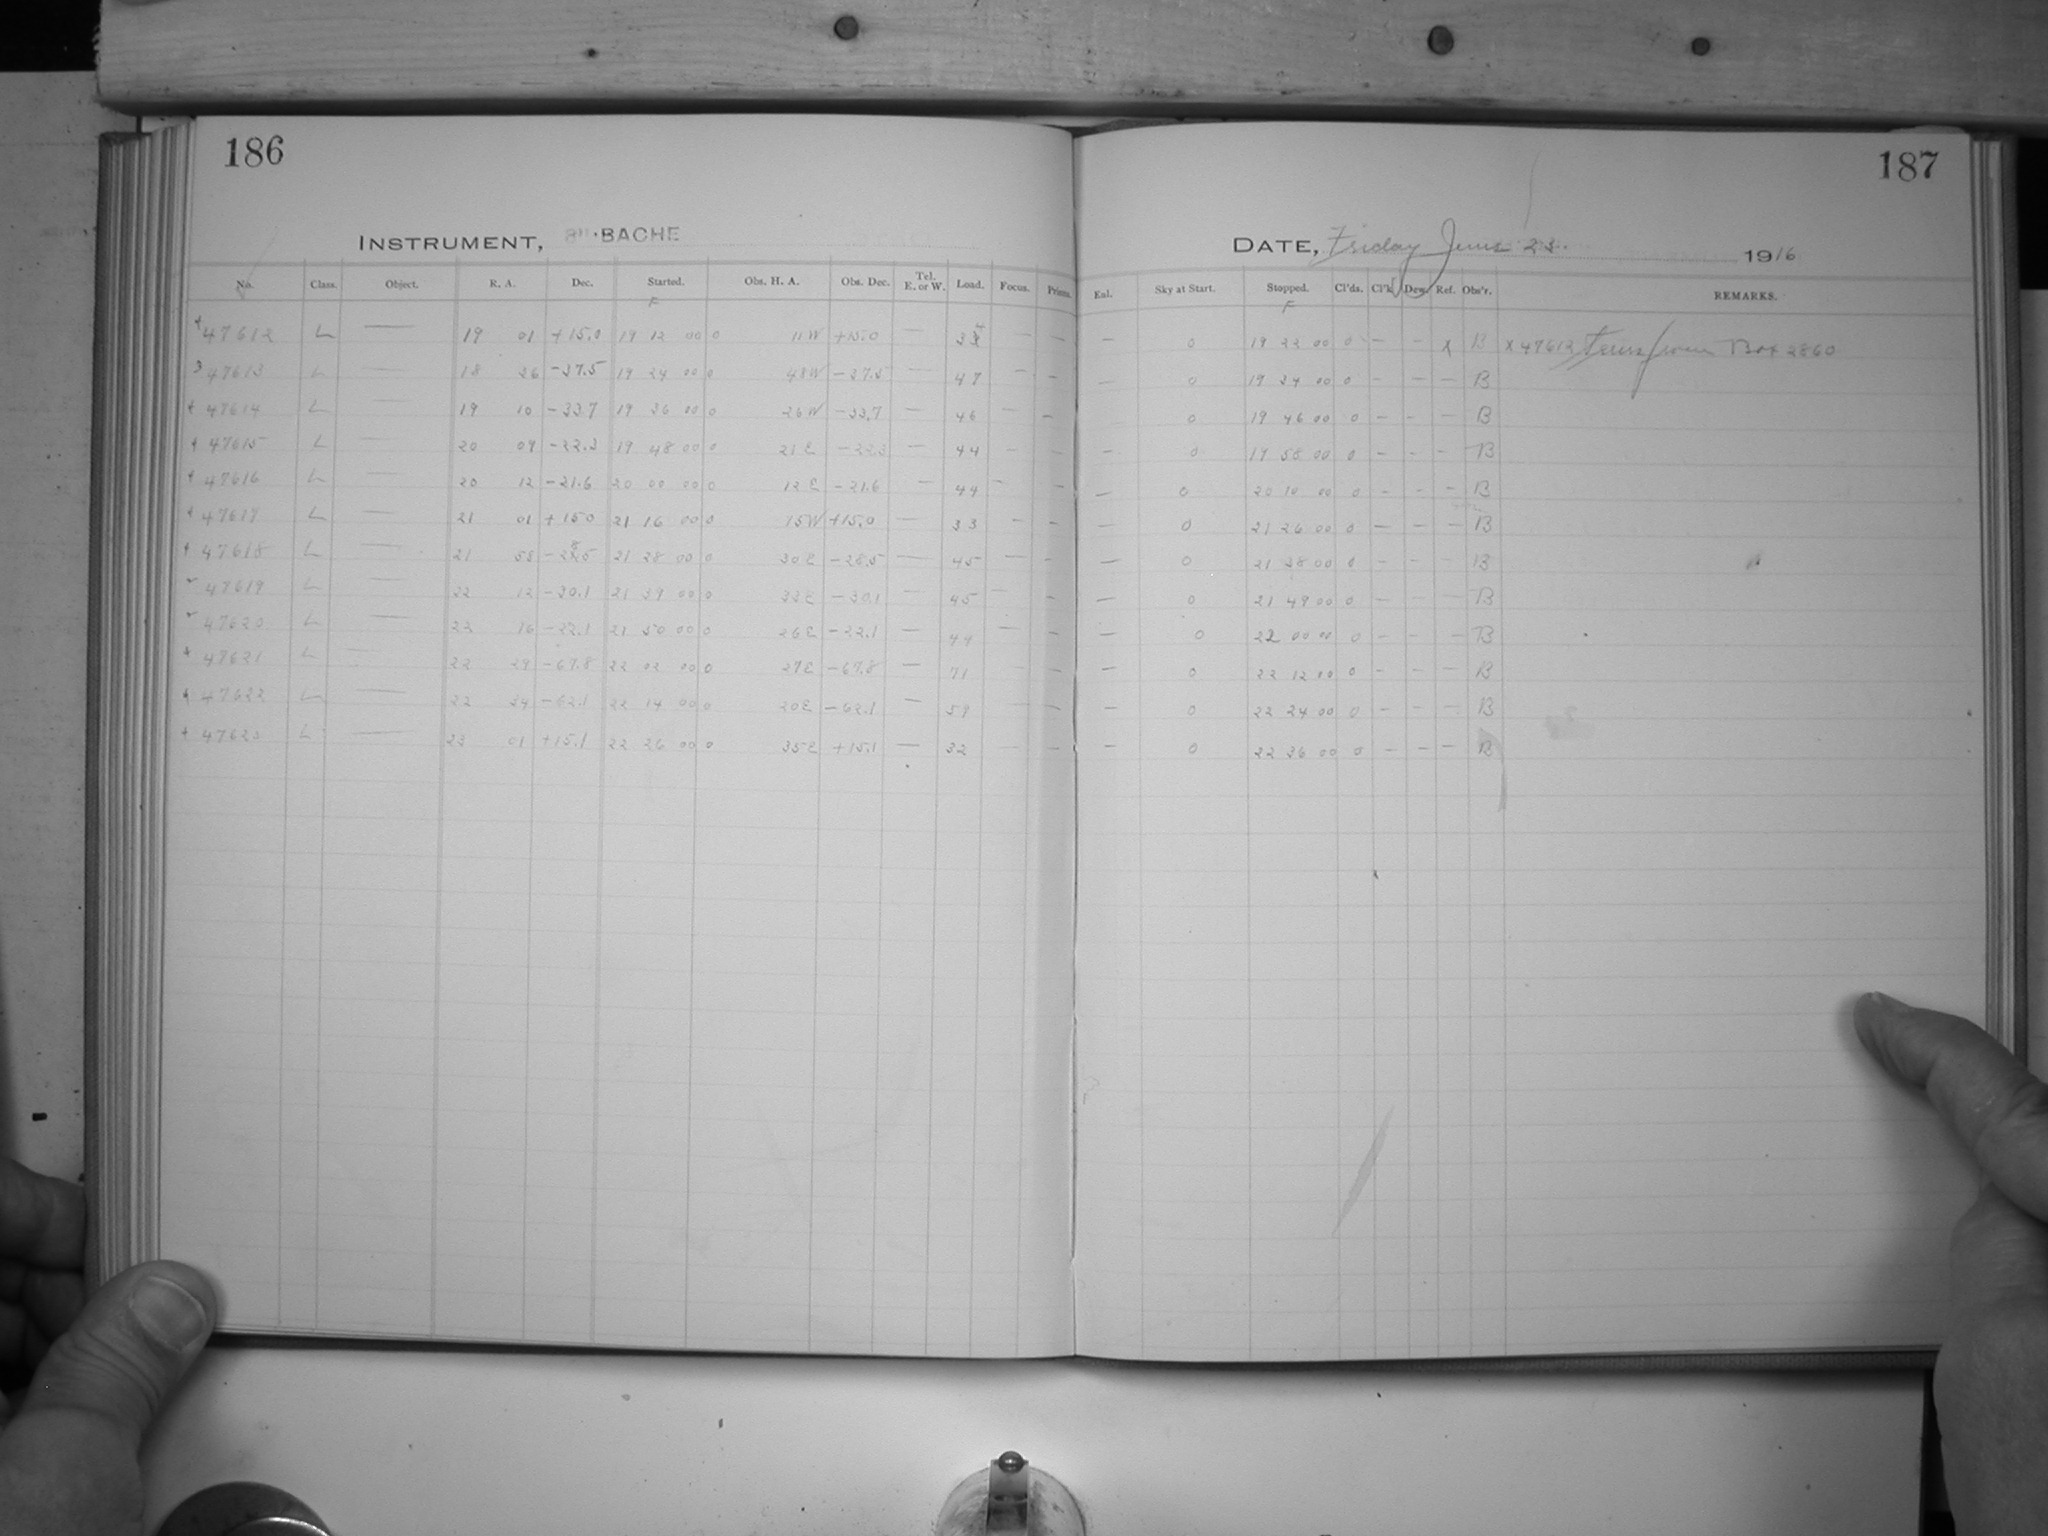 186
INSTRUMENT, 8"·BACHE
No. Class. Object. R. A. Dec. Started. Obs. H. A. Obs. Dec. Tel. E. or W. Load. Focus. Prisms.
F
47612 L — 19 01 +15.0 19 12 00 0 11W +15.0 — 34 — —
47613 L — 18 26 -37.5 19 24 00 0 48W -37.5 — 47 - -
47614 L — 19 10 -33.7 19 36 00 0 26W -33.7 — 46 — —
47615 L — 20 09 -22.3 19 48 00 0 21E -22.3 — 44 - -
47616 L — 20 12 -21.6 20 00 00 0 12E -21.6 — 44 - -
47617 L — 21 01 +15.0 21 16 00 0 15W +15.0 — 33 - -
47618 L — 21 58 -28.5 21 28 00 0 30E -28.5 — 45 — -
47619 L — 22 12 -30.1 21 39 00 0 33E -30.1 — 45 - -
47620 L — 22 16 -22.1 21 50 00 0 26E -22.1 — 44 — -
47621 L — 22 29 -67.8 22 02 00 0 27E -67.8 — 71 — -
47622 L — 22 34 -62.1 22 14 00 0 20E -62.1 — 59 — —
47623 L — 23 01 +15.1 22 26 00 0 35E +15.1 — 32 — —
187
DATE, Friday June 23. 1916
Enl. Sky at Start. Stopped. Cl'ds. Cl'k. Dew. Ref. Obs'r. REMARKS.
F
— 0 19 22 00 0 — - x B x 47612 trans from Box 2860
— 0 19 34 00 0 - - - B
0 19 46 00 0 - - - B
— 0 19 58 00 0 - - - B
— 0 20 10 00 0 - - - B
— 0 21 26 00 0 — - — B
— 0 21 38 00 0 - - - B
— 0 21 49 00 0 - - - B
— 0 22 00 00 0 - - - B
— 0 22 12 00 0 - - - B
— 0 22 24 00 0 - - - B
— 0 22 36 00 0 - - - B